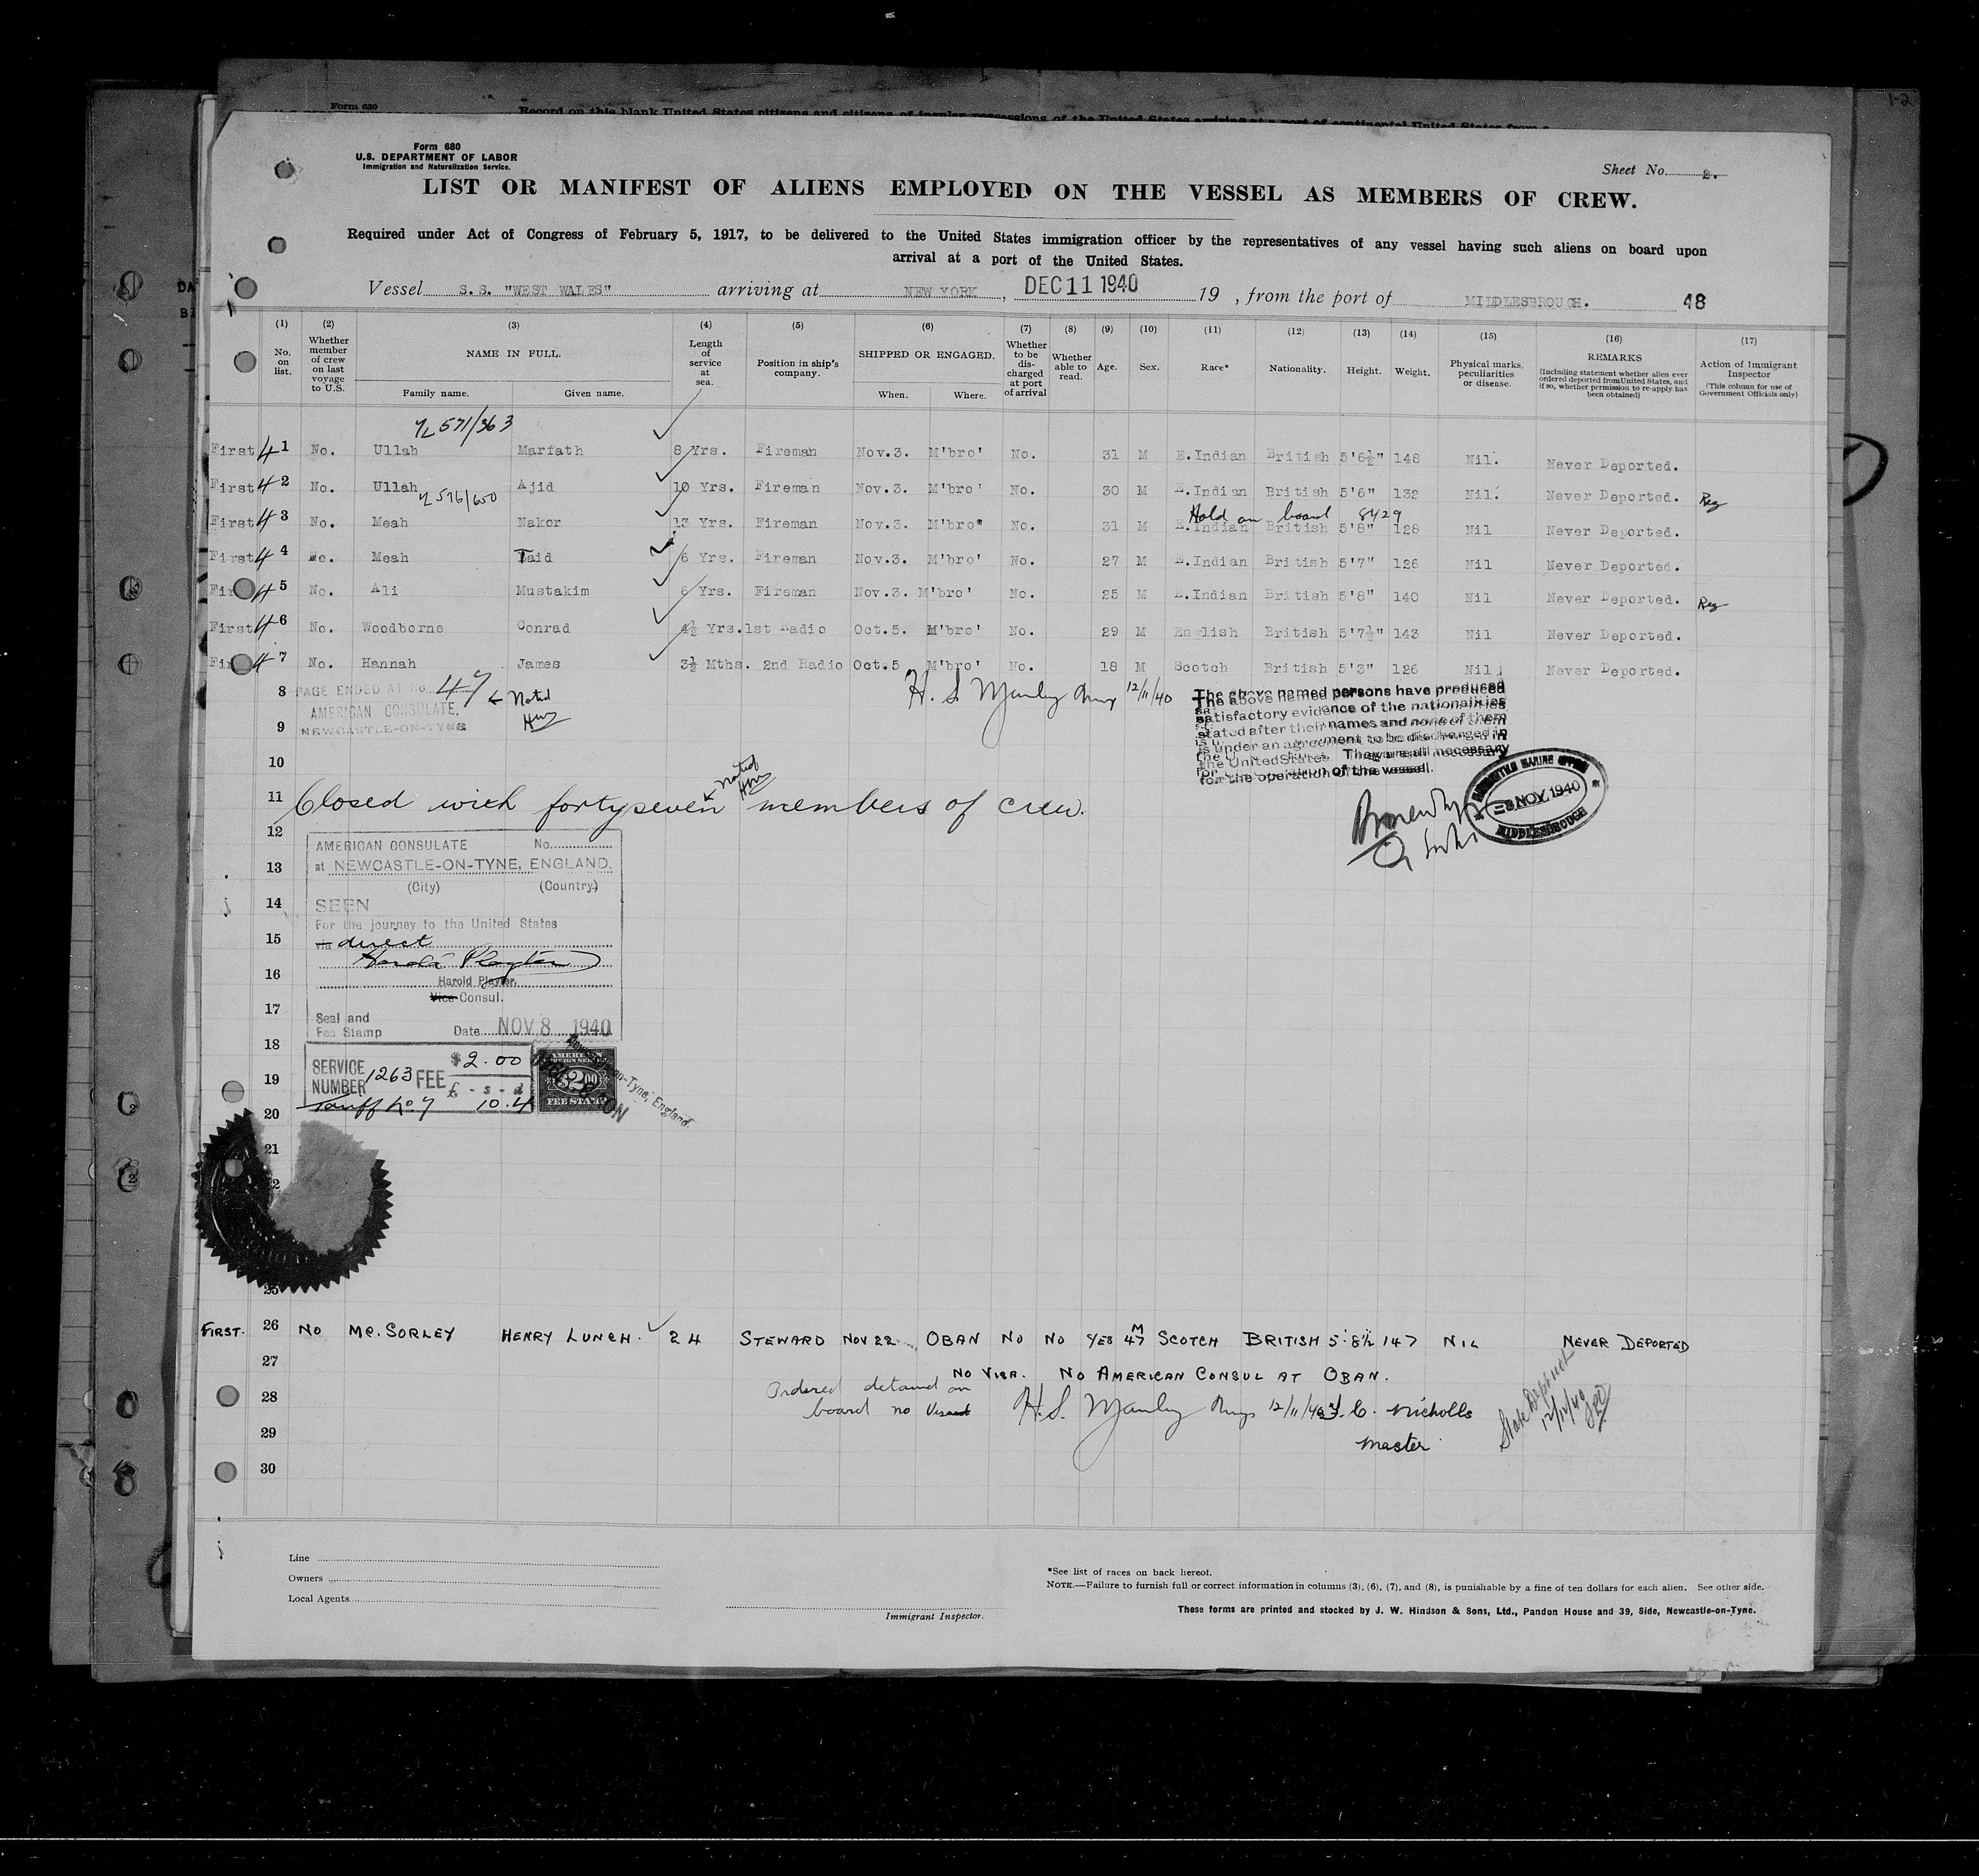 1-2
Form 630
Record on this blank United States citizens and citizens of insular possessions of the United States arriving at a port of continental United States from a
Form 680
U.S. DEPARTMENT OF LABOR
Immigration and Naturalization Service.
Sheet No. 2.
LIST OR MANIFEST OF ALIENS EMPLOYED ON THE VESSEL AS MEMBERS OF CREW.
Required under Act of Congress of February 5, 1917, to be delivered to the United States immigration officer by the representatives of any vessel having such aliens on board upon
arrival at a port of the United States.
Vessel S.S. "WEST WALES" arriving at NEW YORK, DEC 11 1940 19 , from the port of MIDDLESBROUGH. 48
(1) (2) (3) (4) (5) (6) (7) (8) (9) (10) (11) (12) (13) (14) (15) (16) (17)
No. on list. Whether member of crew on last voyage to U.S. NAME IN FULL. Family name. Given name. Length of service at sea. Position in ship's company. SHIPPED OR ENGAGED. When. Where. Whether to be discharged at port of arrival Whether able to read. Age. Sex. Race* Nationality. Height. Weight. Physical marks, peculiarities or disease. REMARKS (Including statement whether alien ever ordered deported from United States, and if so, whether permission to re-apply has been obtained) Action of Immigrant Inspector (This column for use of Government Officials only)
571/363
First 4 1 No. Ullah Marfath 8 Yrs. Fireman Nov.3. M'bro' No. 31 M E.Indian British 5'6½" 148 Nil. Never Deported.
First 4 2 No. Ullah Ajid 10 Yrs. Fireman Nov.3. M'bro' No. 30 M E.Indian British 5'6" 132 Nil. Never Deported. Reg
576/650
Hold on board 8429
First 4 3 No. Meah Nakor 13 Yrs. Fireman Nov.3. M'bro" No. 31 M E.Indian British 5'8" 128 Nil Never Deported.
First 4 4 No. Meah Taid 6 Yrs. Fireman Nov.3. M'bro' No. 27 M E.Indian British 5'7" 126 Nil Never Deported.
First 4 5 No. Ali Mustakim 6 Yrs. Fireman Nov.3. M'bro' No. 25 M E.Indian British 5'8" 140 Nil Never Deported. Reg
First 4 6 No. Woodborne Conrad 4½ Yrs. 1st Radio Oct.5. M'bro' No. 29 M English British 5'7½" 143 Nil Never Deported.
First 4 7 No. Hannah James 3½ Mths. 2nd Radio Oct.5 M'bro' No. 18 M Scotch British 5'3" 126 Nil Never Deported.
8 PAGE ENDED AT No. 47 Noted
AMERICAN CONSULATE,
9 NEWCASTLE-ON-TYNE
H. S. Manley 12/11/40
The above named persons have produced
satisfactory evidence of the nationalities
stated after their names and none of them
is under an agreement to be discharged in
the United States. They are all necessary
for the operation of the vessel.
MERCANTILE MARINE OFFICE
8 NOV. 1940
MIDDLESBROUGH
10
noted
11 Closed with fortyseven members of crew.
12
AMERICAN CONSULATE No.
13 at NEWCASTLE-ON-TYNE, ENGLAND.
(City) (Country)
14 SEEN
For the journey to the United States
15 via direct
Harold Playter
16 Harold Playter.
Vice Consul.
17
Seal and
Fee Stamp Date NOV 8 1940
18
SERVICE NUMBER 1263 FEE $2.00
£ - s - d
Tariff No 7 10.4
AMERICAN FOREIGN SERVICE
$2.00
FEE STAMP
Newcastle-on-Tyne, England.
19
20
21
26 FIRST. No Mc.SORLEY HENRY LUNCH. 24 STEWARD NOV 22 OBAN No No YES 47 M SCOTCH BRITISH 5'8½" 147 NIL NEVER DEPORTED
27 NO VISA. NO AMERICAN CONSUL AT OBAN.
28 Ordered detained on
board no Visaed H.S. Manley 12/11/40 C. Nicholls
29 Master
State Dept
12/12/40
30
Line
Owners
Local Agents
Immigrant Inspector.
*See list of races on back hereof.
NOTE.—Failure to furnish full or correct information in columns (3), (6), (7), and (8), is punishable by a fine of ten dollars for each alien. See other side.
These forms are printed and stocked by J. W. Hindson & Sons, Ltd., Pandon House and 39, Side, Newcastle-on-Tyne.